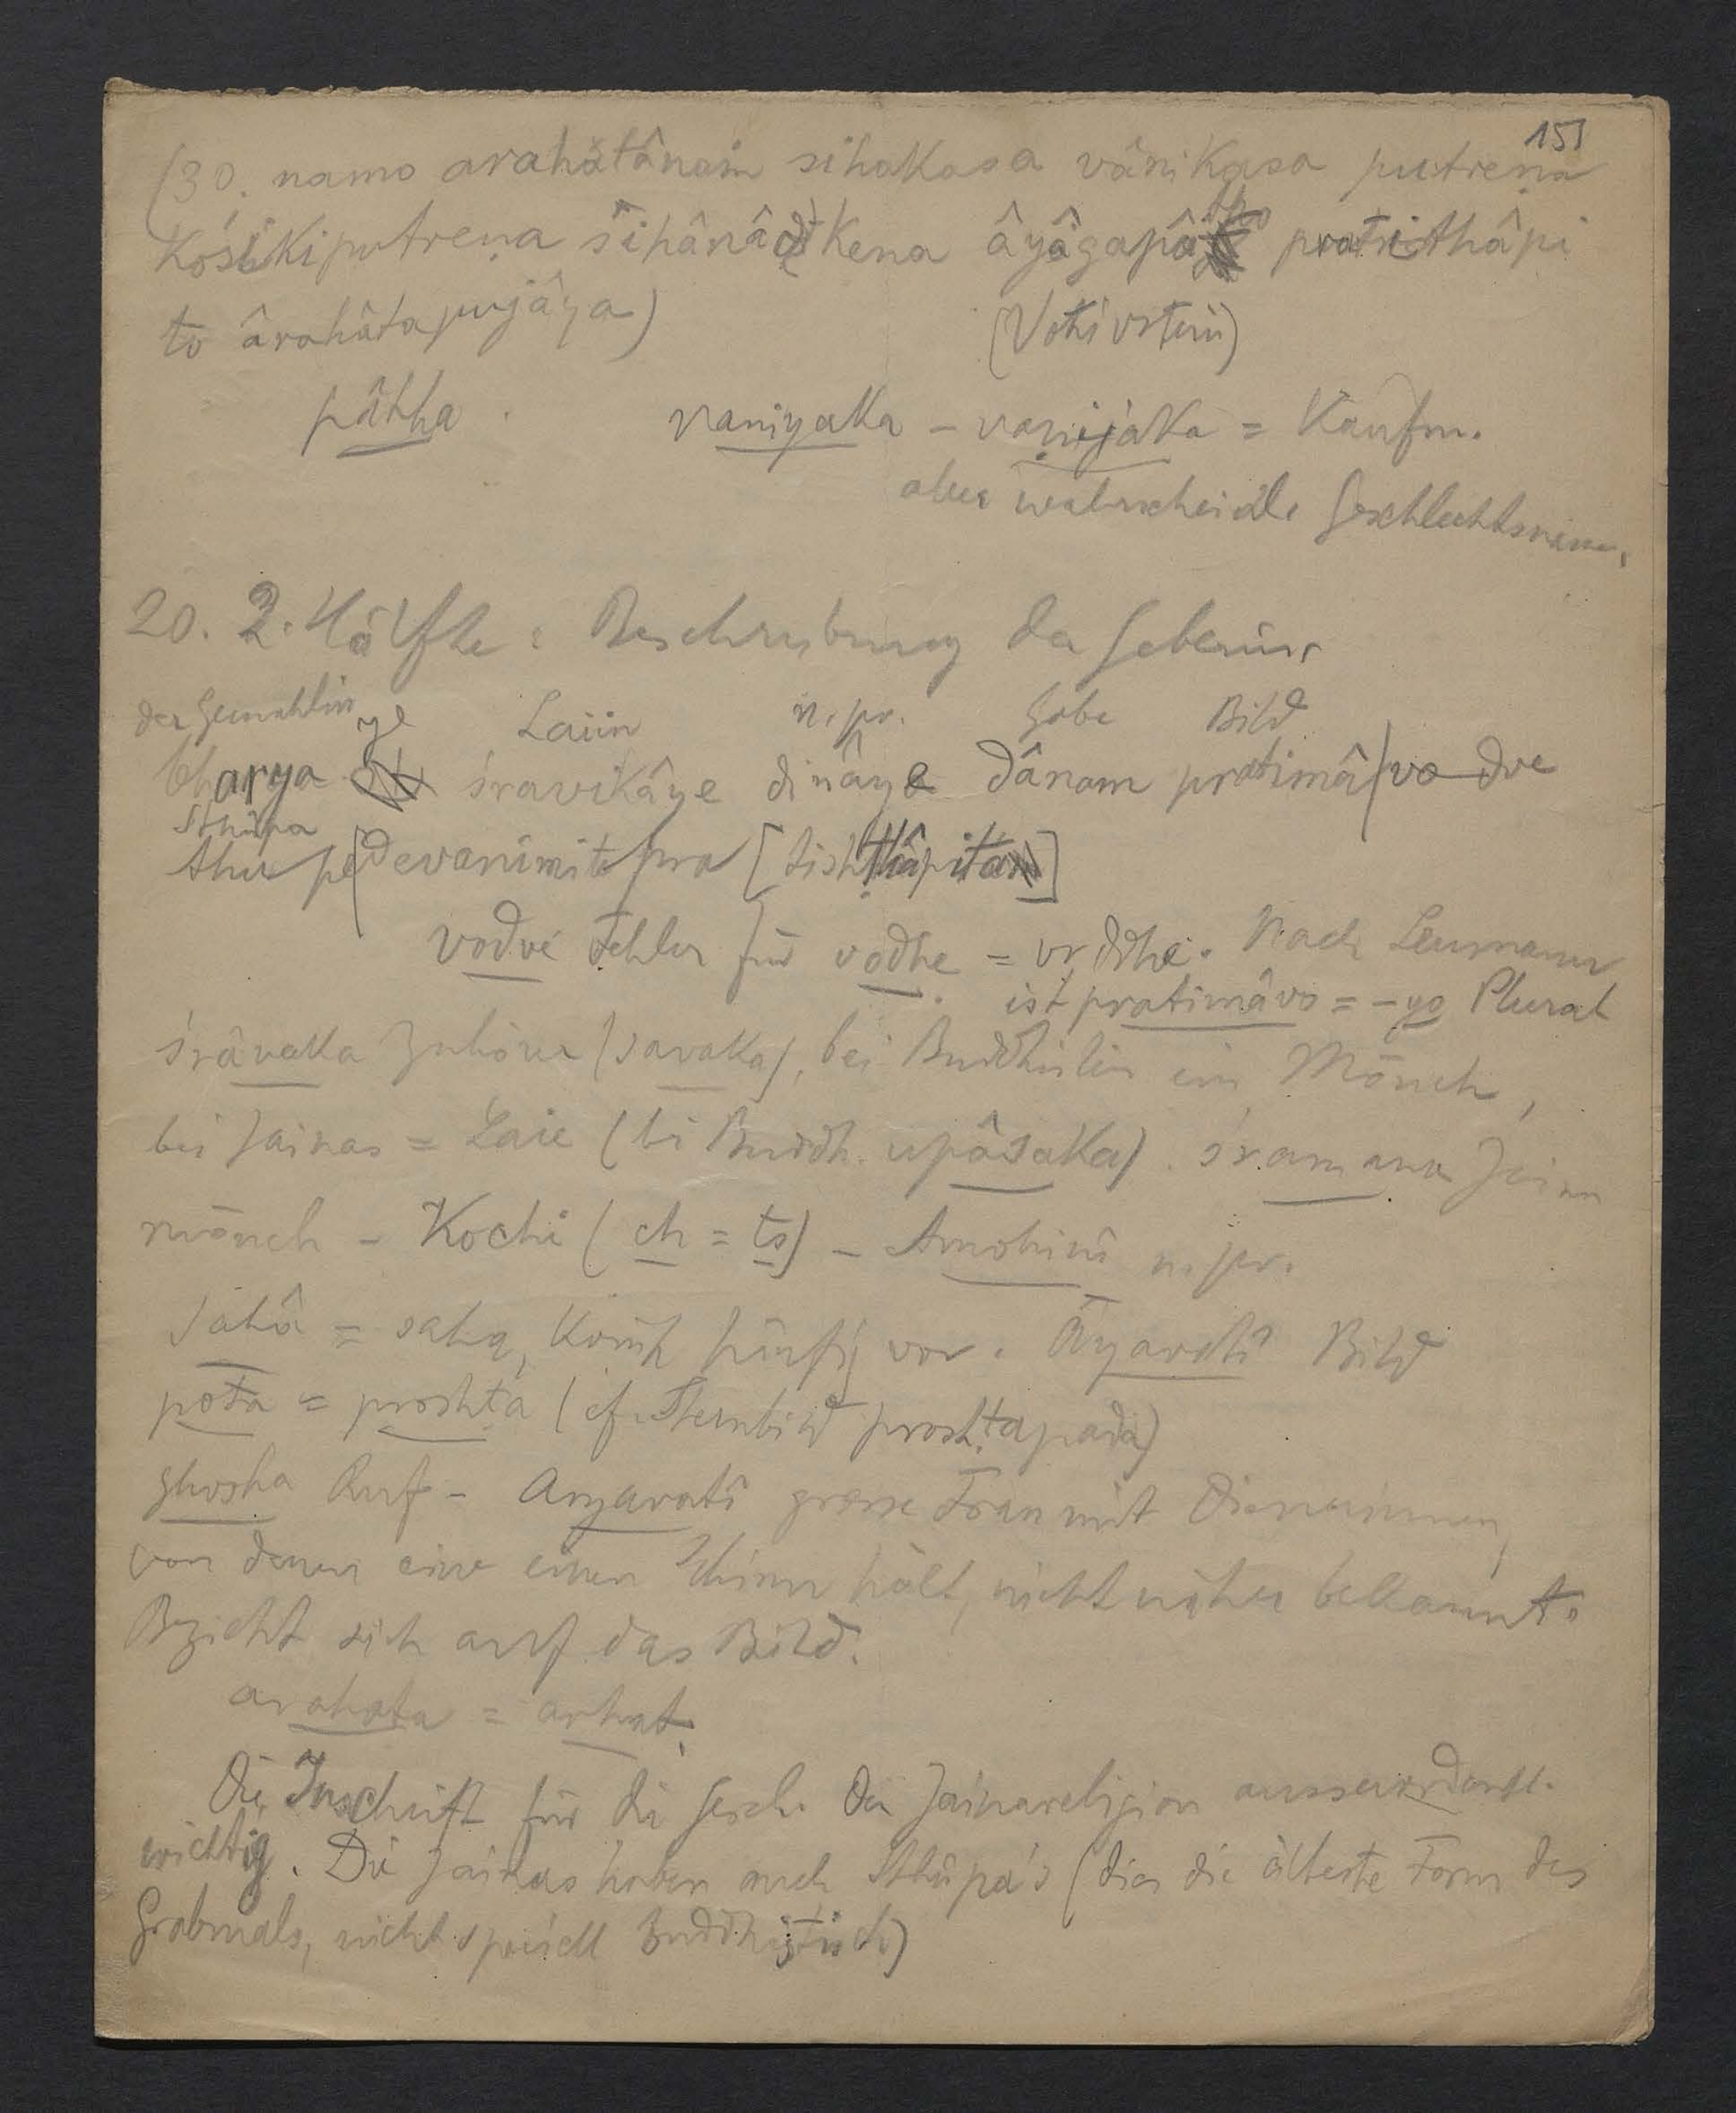 151
(30. namo arahâtânam sihakasa vânikasa putreṇa
Kośikiputreṇa sihânâdikena âyâgapâṭo pratithâpi
to ârahâtapujâya) (Votivstein)
pâtha . vaniyaka – vaṇijaka = Kaufm.
aber wahrscheinl. Geschlechtsname.
20. 2. Hälfte : Beschreibung der Geberin.
der Gemahlin ye Laiin n. pr. Gabe Bild
bharya śravikâye dinâye dânam pratimâ (vo dve
Sthûpa
thupe devanimite pra [tishṭhâpita]
vodve Fehler für vodhe = vṛddhe. Nach Leumann
ist pratimâvo = -yo Plural
śrâvaka Zuhörer (savaka), bei Buddhisten ein Mönch,
bei Jainas = Laie (bei Buddh. upâsaka). śramana Jaina
mönch – Kochi (ch = ts) – Amohini n. pr.
sahâ = saha, kommt häufig vor. Âyavatî Bild
pota = proshṭa (cf. Sternbild proshṭapada)
ghosha Ruf – Aryavatî grosse Frau mit Dienerinnen,
von denen eine einen Schirm hält, nicht näher bekannt.
Bezieht sich auf das Bild.
arahata = arhat.
Die Inschrift für die Gesch. der Jainareligion ausserordentl.
wichtig. Die Jainas haben auch Sthûpa's (dies die älteste Form des
Grabmals, nicht speciell Buddhistisch)